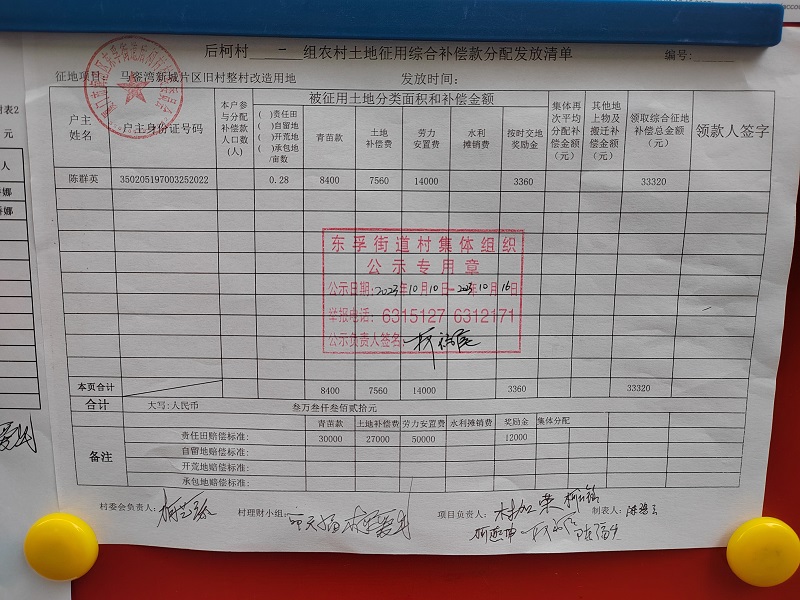 后柯村 二 组农村土地征用综合补偿款分配发放清单
编号:
征地项目 马銮湾新城片区旧村整村改造用地 发放时间:
户主姓名 户主身份证号码 本户参与分配补偿款人口数(人) 被征用土地分类面积和补偿金额 集体再次平均分配补偿金额(元) 其他地上物及搬迁补偿金额(元) 领取综合征地补偿总金额(元) 领款人签字
( )责任田 ( )自留地 ( )开荒地 ( )承包地 /亩数 青苗款 土地补偿费 劳力安置费 水利摊销费 按时交地奖励金
陈群英 350205197003252022 0.28 8400 7560 14000 3360 33320
东孚街道村集体组织
公示专用章
公示日期:2023年10月10日-2023年10月16日
举报电话: 6315127 6312171
公示负责人签名:
本页合计 8400 7560 14000 3360 33320
合计 大写:人民币 叁万叁仟叁佰贰拾元
备注 青苗款 土地补偿费 劳力安置费 水利摊销费 奖励金 集体分配
责任田赔偿标准: 30000 27000 50000 12000
自留地赔偿标准:
开荒地赔偿标准:
承包地赔偿标准:
村委会负责人: 村理财小组: 项目负责人: 制表人:
附表2
元
人